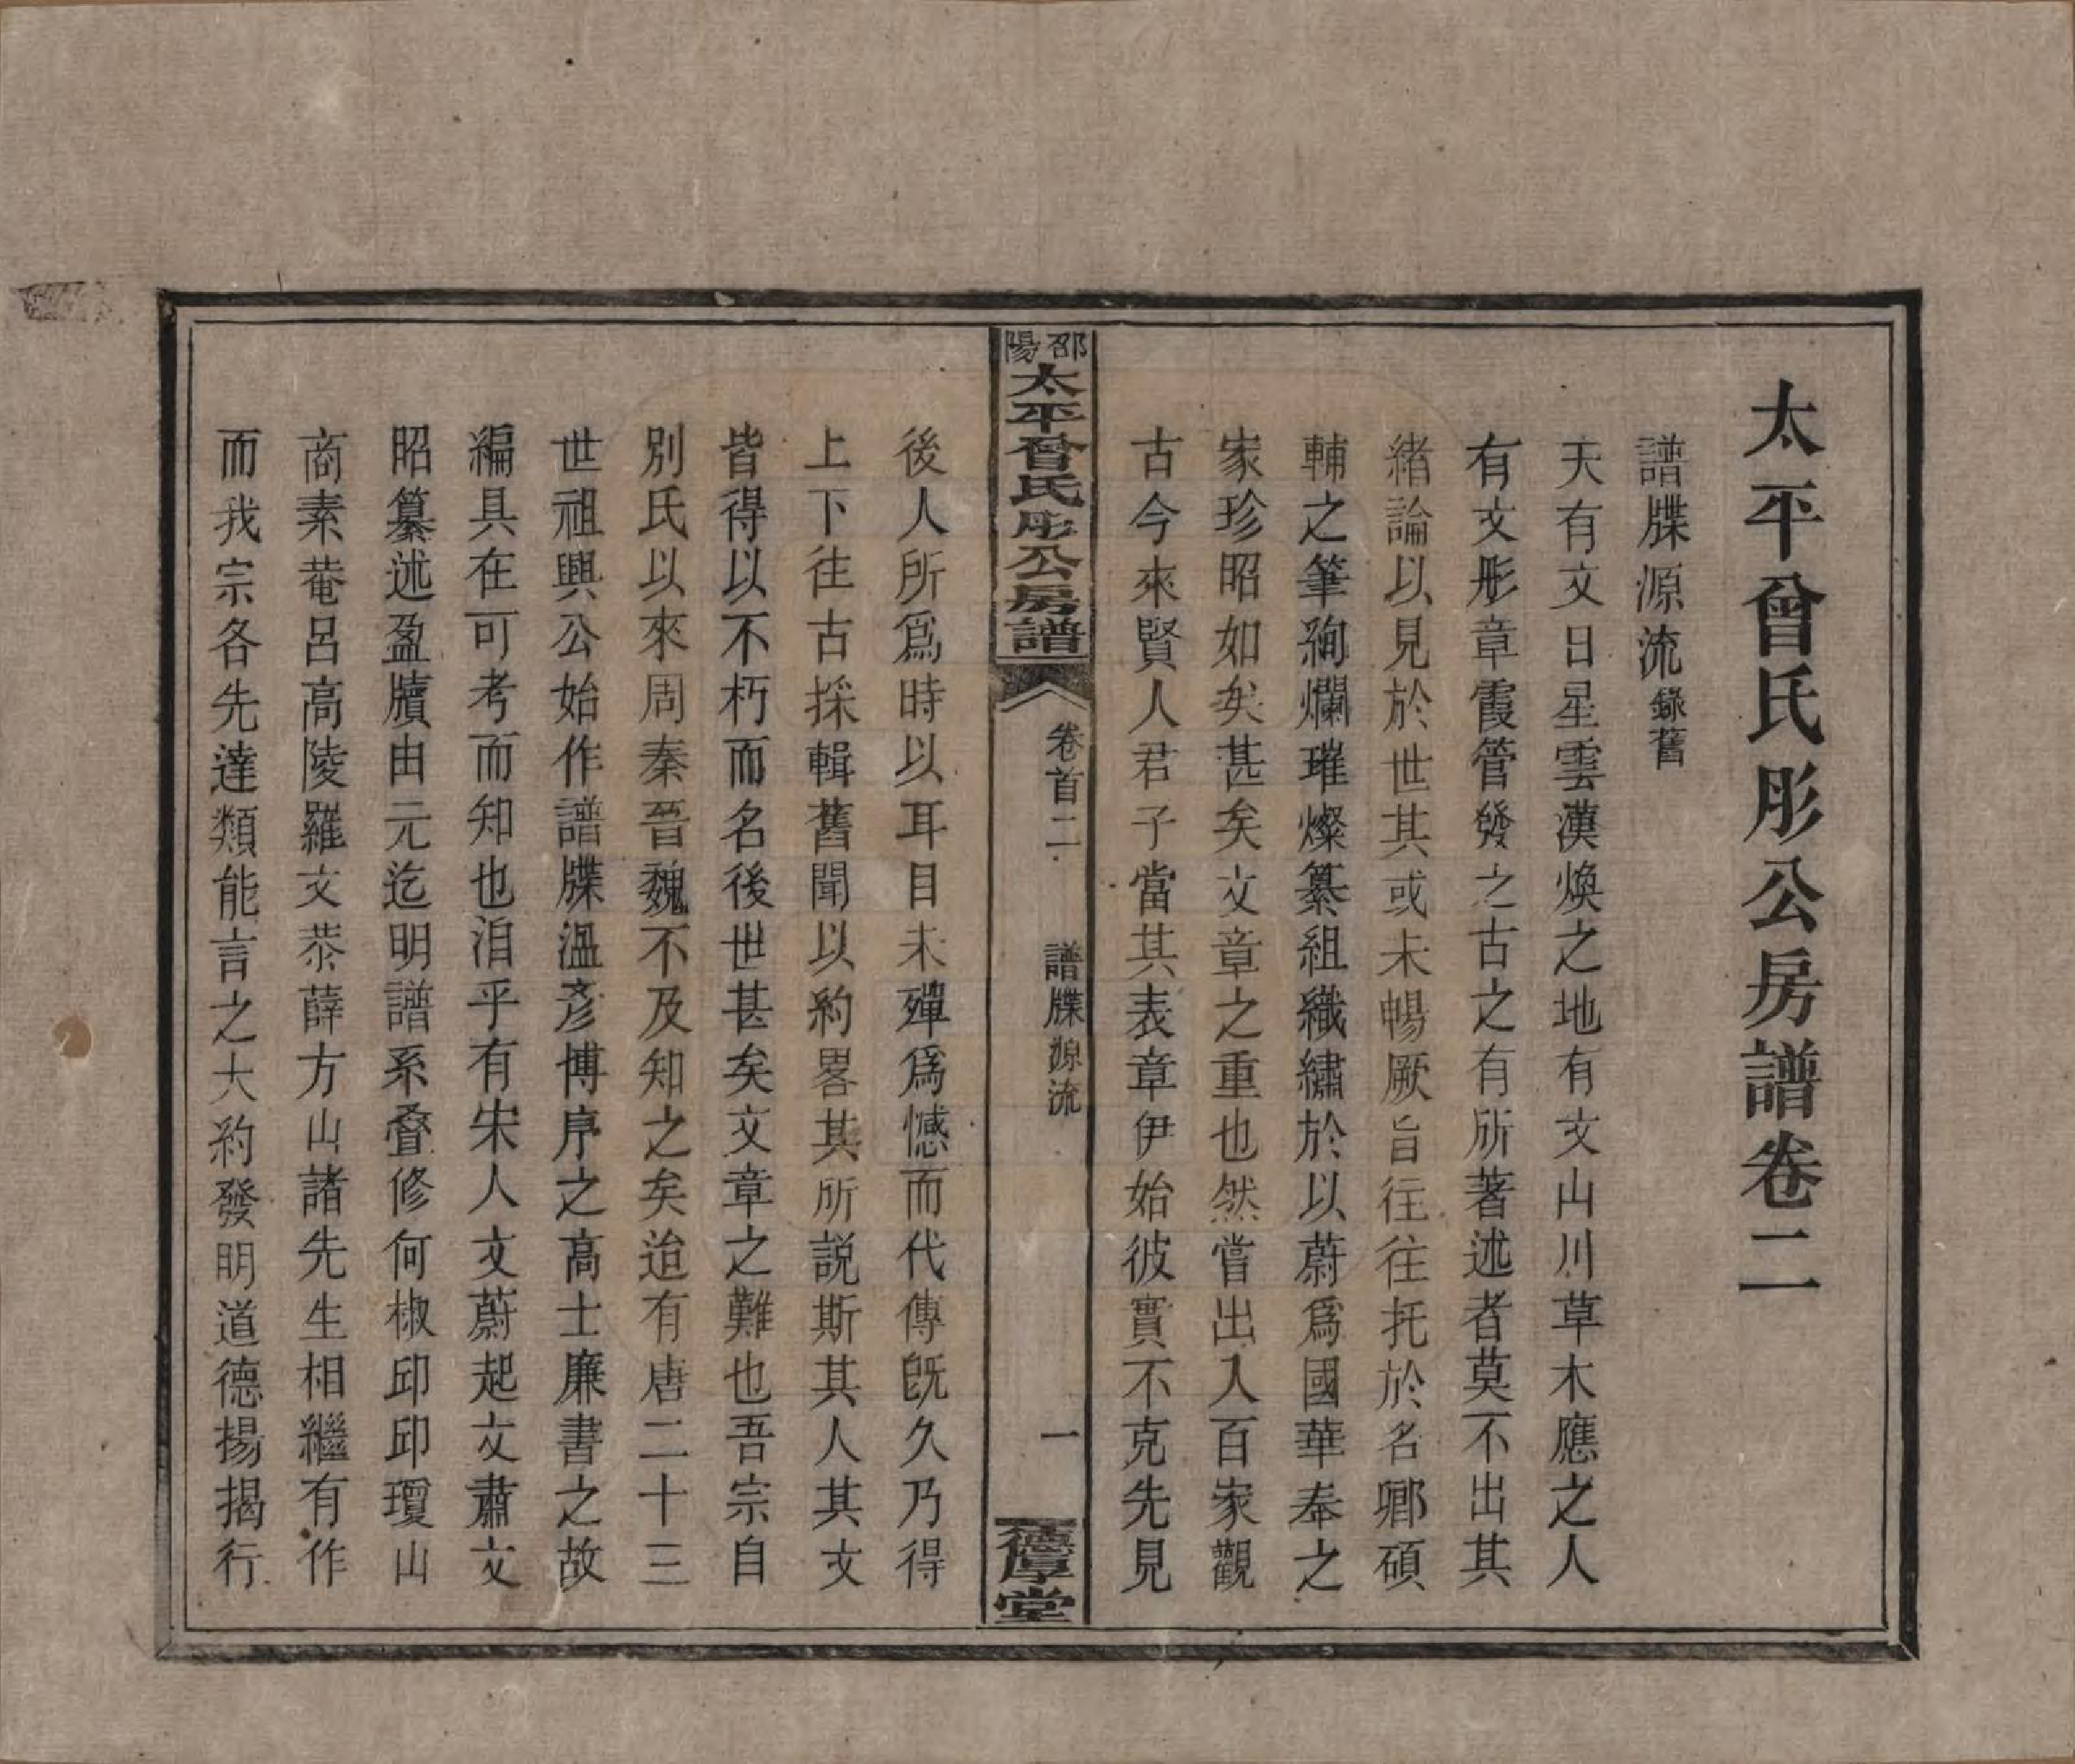 太平曾氏彤公房譜卷二
譜牒源流錄舊
天有文日星雲漢煥之地有文山川草木應之人
有文彤章霞管發之古之有所著述者莫不出其
緒論以見於世其或未暢厥旨往往托於名卿碩
輔之筆絢爛璀燦纂組織繡於以蔚爲國華奉之
家珍昭如矣甚矣文章之重也然嘗出入百家觀
古今來賢人君子當其表章伊始彼實不克先見
邵陽太平曾氏彤公房譜
卷首二
譜牒源流
一
德厚堂
後人所爲時以耳目未殫爲憾而代傳旣久乃得
上下往古採輯舊聞以約畧其所説斯其人其文
皆得以不朽而名後世甚矣文章之難也吾宗自
別氏以來周秦晉魏不及知之矣迨有唐二十三
世祖興公始作譜牒溫彥博序之高士廉書之故
編具在可考而知也洎乎有宋人文蔚起文肅文
昭纂述盈牘由元迄明譜系叠修何椒邱邱瓊山
商素菴呂高陵羅文恭薛方山諸先生相繼有作
而我宗各先達類能言之大約發明道德揚揭行